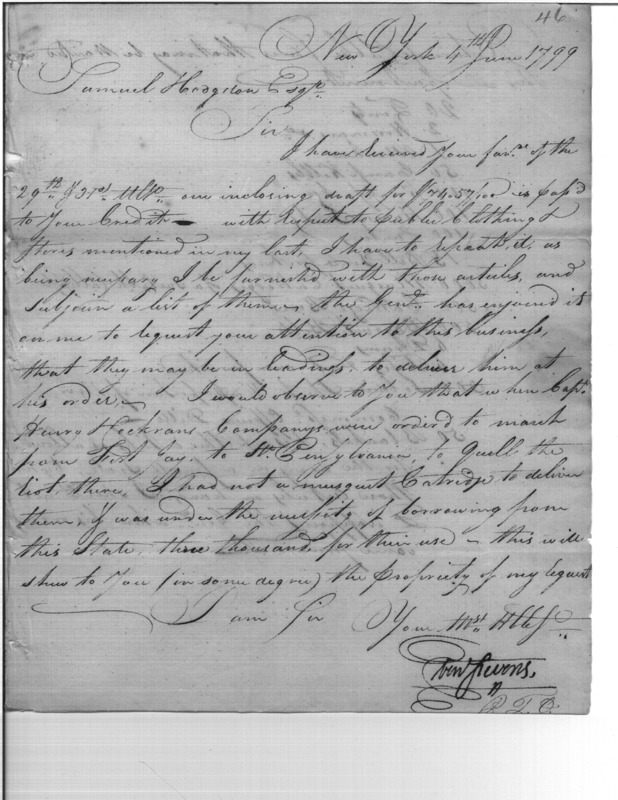 46
New York 4th June 1799
Samuel Hodgdon Esqr.
Sir
I have received Your favr. of the
29th & 31st Ulto. one inclosing draft for $74.57/100 is pass'd
to Your Credit — with respect to Clothing &
Stores mentioned in my last, I have to repeat it, as
being necessary I be furnish'd with those articles, and
subjoin a list of them, the Genl. has enjoined it
on me to request your attention to this business,
that they may be in readiness, to deliver him at
his order — I would observe to You that when Capt.
Henry & Companys were order'd to march
from Fort Jay, to Pensylvania, to quell the
riot, there, I had not a musquet Catridge to deliver
them, & was under the necessity of borrowing from
this State, three thousand, for their use — this will
shew to You (in some degree) the Propriety of my request
I am Sir Your Mst. Hble St.
Eben Stevens